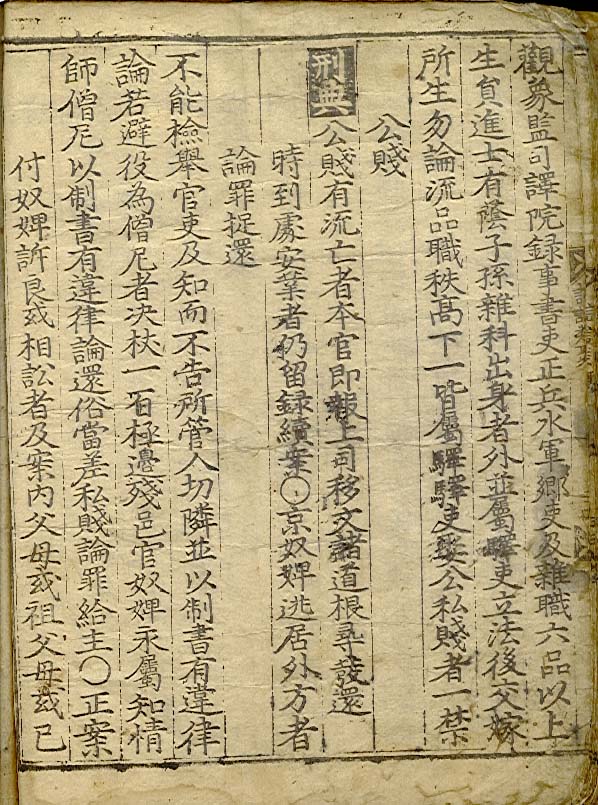 觀象監司譯院録事書吏正兵水軍鄉吏及雜職六品以上
生員進士有蔭子孫雜科出身者外並屬驛吏立法後交嫁
所生勿論流品職秩高下一皆屬驛驛吏娶公私賤者一禁
公賤
刑典 公賤有流亡者本官即報上司移文諸道根尋發還
時到處安業者仍留録續案〇京奴婢逃居外方者
論罪捉還
不能檢舉官吏及知而不告所管人切隣並以制書有違律
論若避役為僧尼者決杖一百極邊殘邑官奴婢永屬知情
師僧尼以制書有違律論還俗當差私賤論罪給主〇正案
付奴婢訴良或相訟者及案內父母或祖父母或已